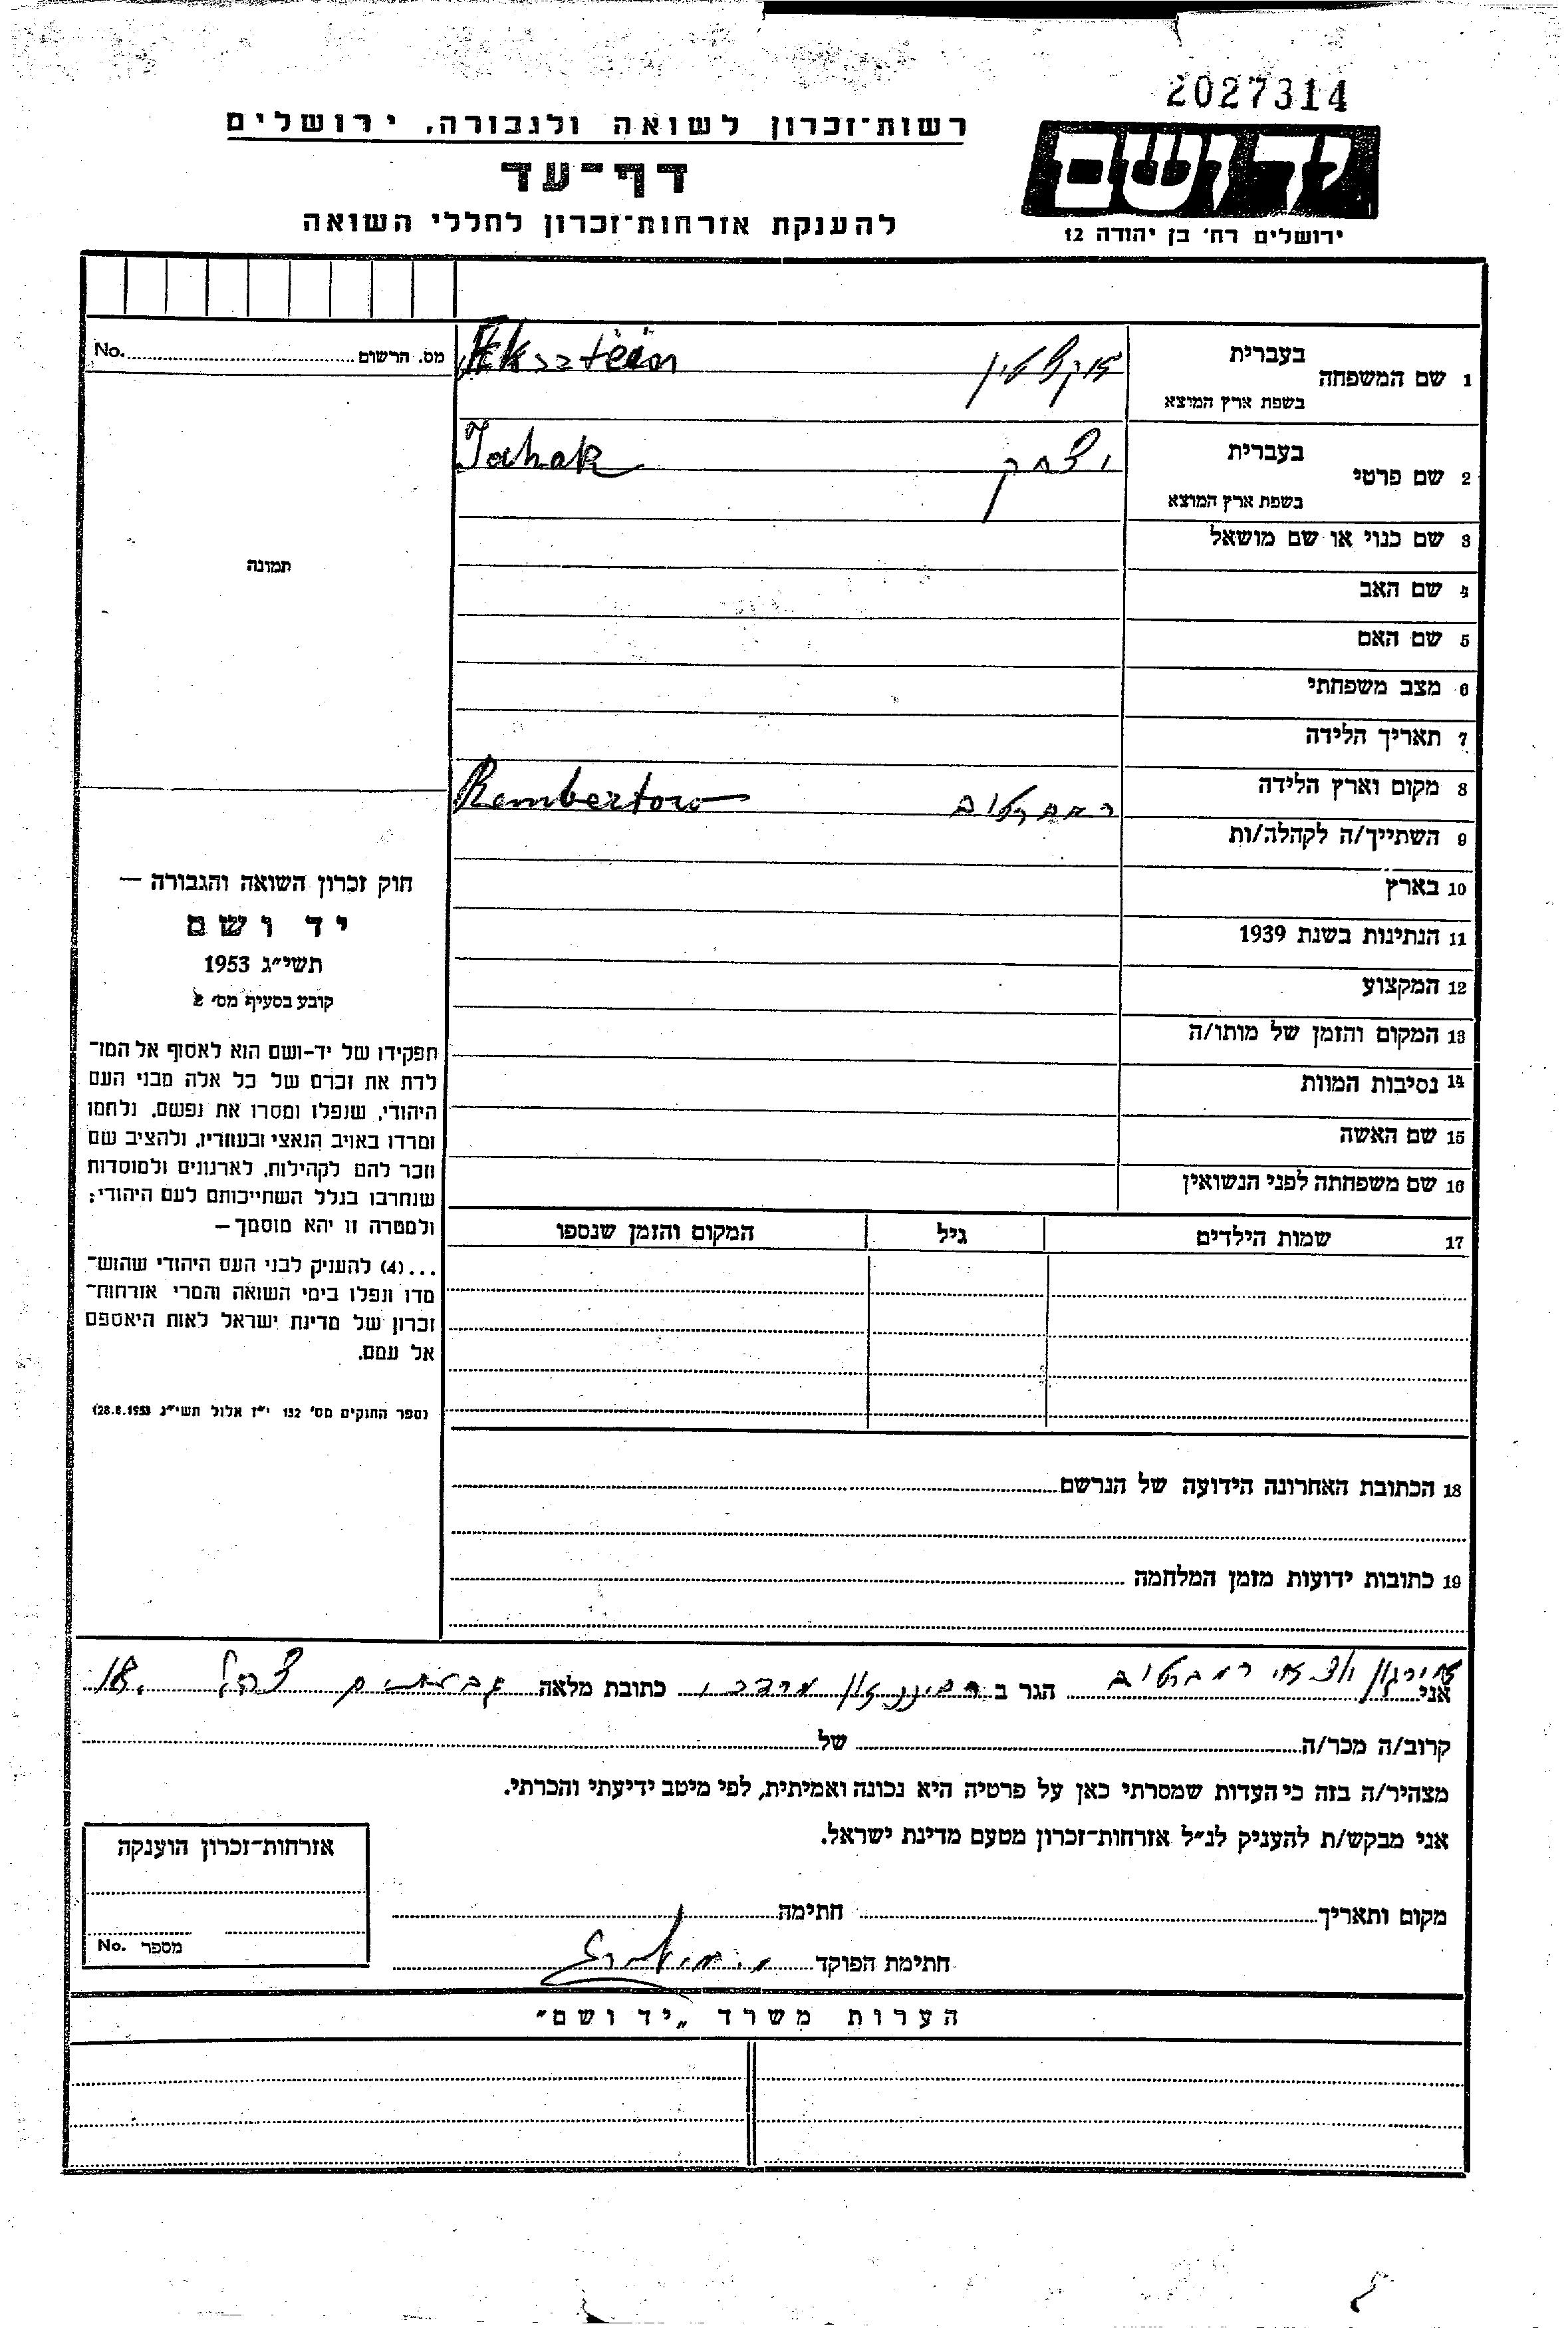 2027314
רשות־זכרון לשואה ולגבורה, ירושלים
דף־עד
להענקת אזרחות־זכרון לחללי השואה
יד ושם
ירושלים רח' בן יהודה 12
מס. הרשום No.
1 שם המשפחה בעברית אקשטין Eksztein
בשפת ארץ המוצא
2 שם פרטי בעברית יצחק Jcchak
בשפת ארץ המוצא
3 שם כנוי או שם מושאל
תמונה
4 שם האב
5 שם האם
6 מצב משפחתי
7 תאריך הלידה
8 מקום וארץ הלידה רמברטוב Rembertow
9 השתייך/ה לקהלה/ות
10 בארץ
11 הנתינות בשנת 1939
12 המקצוע
13 המקום והזמן של מותו/ה
14 נסיבות המוות
15 שם האשה
16 שם משפחתה לפני הנשואין
17 שמות הילדים גיל המקום והזמן שנספו
חוק זכרון השואה והגבורה —
יד ושם
תשי״ג 1953
קובע בסעיף מס' 2
תפקידו של יד-ושם הוא לאסוף אל המו־
לדת את זכרם של כל אלה מבני העם
היהודי, שנפלו ומסרו את נפשם, נלחמו
ומרדו באויב הנאצי ובעוזריו, ולהציב שם
וזכר להם לקהילות, לארגונים ולמוסדות
שנחרבו בגלל השתייכותם לעם היהודי;
ולמטרה זו יהא מוסמך—
...(4) להעניק לבני העם היהודי שהוש־
מדו ונפלו בימי השואה והמרי אזרחות־
זכרון של מדינת ישראל לאות היאספם
אל עמם.
(ספר החוקים מס' 132 י״ז אלול תשי״ג 28.8.1953)
18 הכתובת האחרונה הידועה של הנרשם
19 כתובות ידועות מזמן המלחמה
אני ארגון יוצאי רמברטוב הגר ב מרדכי כתובת מלאה גבעתיים צהל 18.
קרוב/ה מכר/ה של
מצהיר/ה בזה כי העדות שמסרתי כאן על פרטיה היא נכונה ואמיתית, לפי מיטב ידיעתי והכרתי.
אני מבקש/ת להעניק לנ״ל אזרחות־זכרון מטעם מדינת ישראל.
מקום ותאריך חתימה
חתימת הפוקד
אזרחות־זכרון הוענקה
מספר No.
הערות משרד „יד ושם״